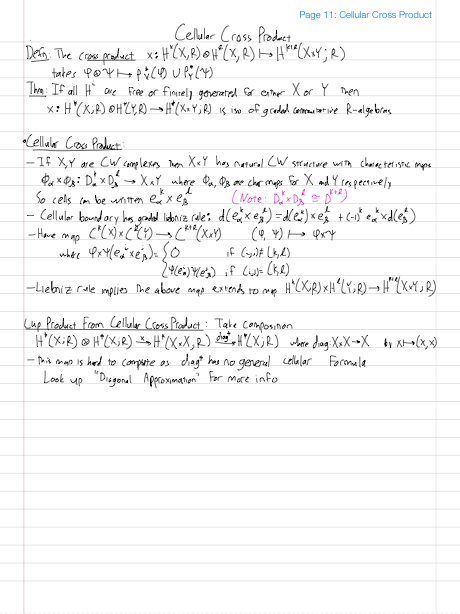 Page 11: Cellular Cross Product
Cellular Cross Product
Defn: The cross product x: H^k(X;R)⊗H^l(X,R) ↦ H^{k+l}(X×Y; R)
takes φ⊗ψ ↦ p_X^*(φ) ∪ p_Y^*(ψ)
Thm: If all H^i are free or finitely generated for either X or Y then
x: H^*(X;R)⊗H^*(Y;R) → H^*(X×Y;R) is iso of graded commutative R-algebras
•Cellular Cross Product:
– If X,Y are CW complexes then X×Y has natural CW structure with characteristic maps
Φ_α×Φ_β: D_α^k×D_β^l → X×Y where Φ_α, Φ_β are char maps for X and Y respectively
So cells can be written e_α^k × e_β^l (Note: D_α^k×D_β^l ≅ D^{k+l})
– Cellular boundary has graded leibniz rule: d(e_α^k×e_β^l) = d(e_α^k)×e_β^l + (-1)^k e_α^k×d(e_β^l)
– Have map C^k(X)×C^l(Y) → C^{k+l}(X×Y) (φ, ψ) ↦ φ×ψ
where φ×ψ(e_α^i×e_β^j) = { 0 if (i,j)≠(k,l)
φ(e_α^i)ψ(e_β^j) if (i,j)=(k,l)
– Liebniz rule implies the above map extends to map H^k(X;R)×H^l(Y;R) → H^{k+l}(X×Y;R)
Cup Product From Cellular Cross Product: Take composition
H^*(X;R)⊗H^*(X;R) →^x H^*(X×X,R) →^{diag^*} H^*(X;R) where diag: X→X×X by x↦(x,x)
– This map is hard to compute as diag^* has no general cellular Formula
Look up "Diagonal Approximation" for more info